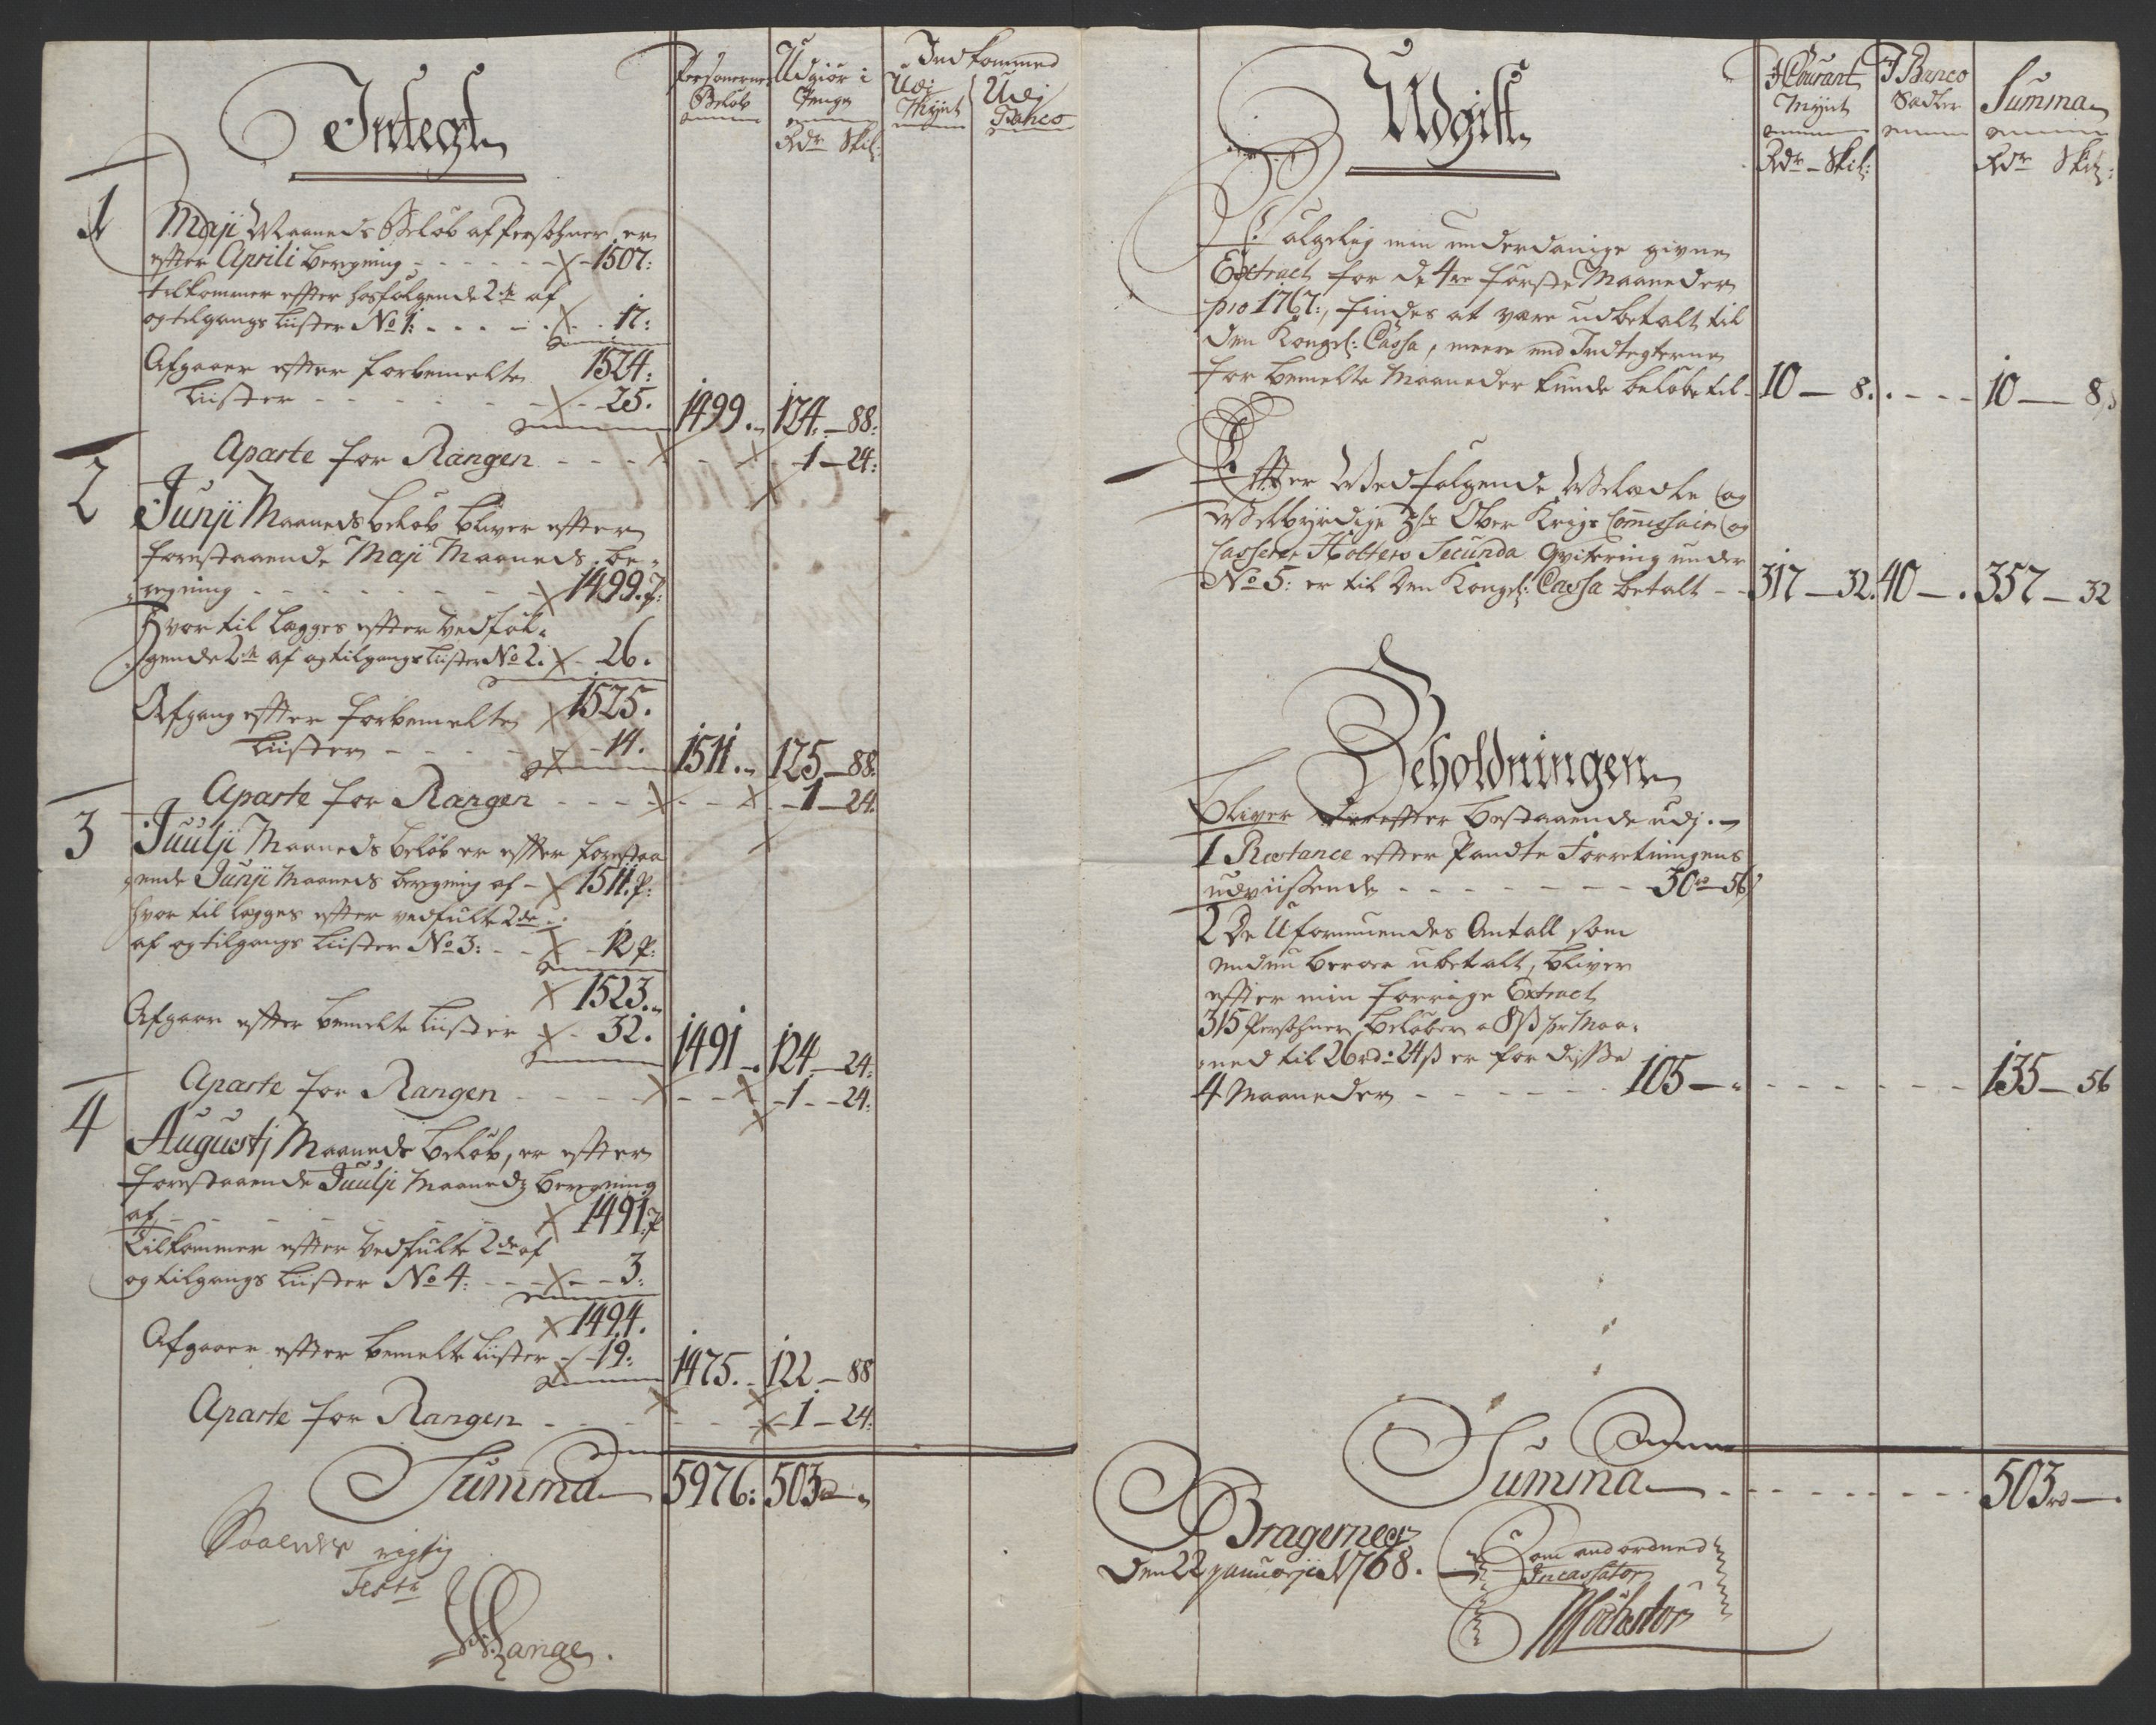 Indtegt
Personernes Beløb
Udgiør i Penge
Rdr Skil:
Indkommed
Udj Mÿnt
Udj Banco
1
Maji Maaneds Beløb af Persohner er
effter Aprili beregning - - - - - - 1507:
tilkommer effter hosfølgende 2de af
og tilgangs Liister No 1: - - - - - 17:
1524:
Afgaaer effter forbemelte
Liister - - - - - - 25. 1499. 124. - 88:
Aparte for Rangen - - - - - 1 - 24:
2
Junji Maaneds beløb bliver effter
forestaaende Maji Maaneds be-
regning - - - - - - 1499. P:
Hvor til lægges effter vedføl-
gende 2de af og tilgangs Liister No 2. - 26.
1525.
Afgang effter forbemelte
Liister - - - - - 14. 1511. 125 - 88.
Aparte for Rangen - - - - - - 1 - 24.
3
Juulji Maaneds beløb er effter forestaa
ende Junji Maaneds beregning af - 1511. P:
hvor til lægges effter vedfulte 2de
af og tilgangs Liister No 3: - - - 12 P:
1523.
Afgaar effter bemelte Liister - 32. 1491 - 124 - 24:
Aparte for Rangen - - - - - - - 1 - - 24:
4
Augustj Maaneds beløb, er effter
forestaaende Juulji Maaneds beregning
af, - - - - - - 1491. P
Tilkommer effter vedfulte 2de af
og tilgangs Liister No 4: - - - - 3:
1494.
Afgaaer effter bemelte Liister - 19: 1475. - 122. - 88
Aparte for Rangen - - - - - - 1 - 24:
Summa 5976: 503 rd - "
rigtig
Test:
Lange.
Udgift
J Courant Mÿnt
Rdr - Skil:
J Banco Sædler
Summa
Rdr Skil:
Følgelig min underdanige givne
Extract for de 4re første Maaneder
pro 1767:, findes at være udbetalt til
den Kongel: Cassa, meere end Indtegterne
for bemelte Maaneder kunde beløbe til - 10 - 8. - - - 10 - 8
Effter Medfølgende Velædle og
Velbyrdige Hr Ober Krigs Commissair og
Casserer Holters Secunda Qvitering under
No 5: er til den Kongel: Cassa betalt - - 317 - 32. 40 - . 357 - 32
Beholdningen
bliver derefter bestaaende udj. -
1 Restance effter Pandte Forretningens
udviisende - - - - - - - - 30 rd - 56
2 De Uformuendes Antall som
endnu beroer ubetalt, bliver
effter min forrige Extract
315 Persohner, beløber a 8 ß pr Maa-
ned til 26 rd: 24 ß er for disse
4 Maaneder - - - - - - 105 - " - - - - - - 135 - 56
Summa - - - - - - - 503 rd - .
Bragernes
den 22 januarji 1768.
Som andordned
Incassator